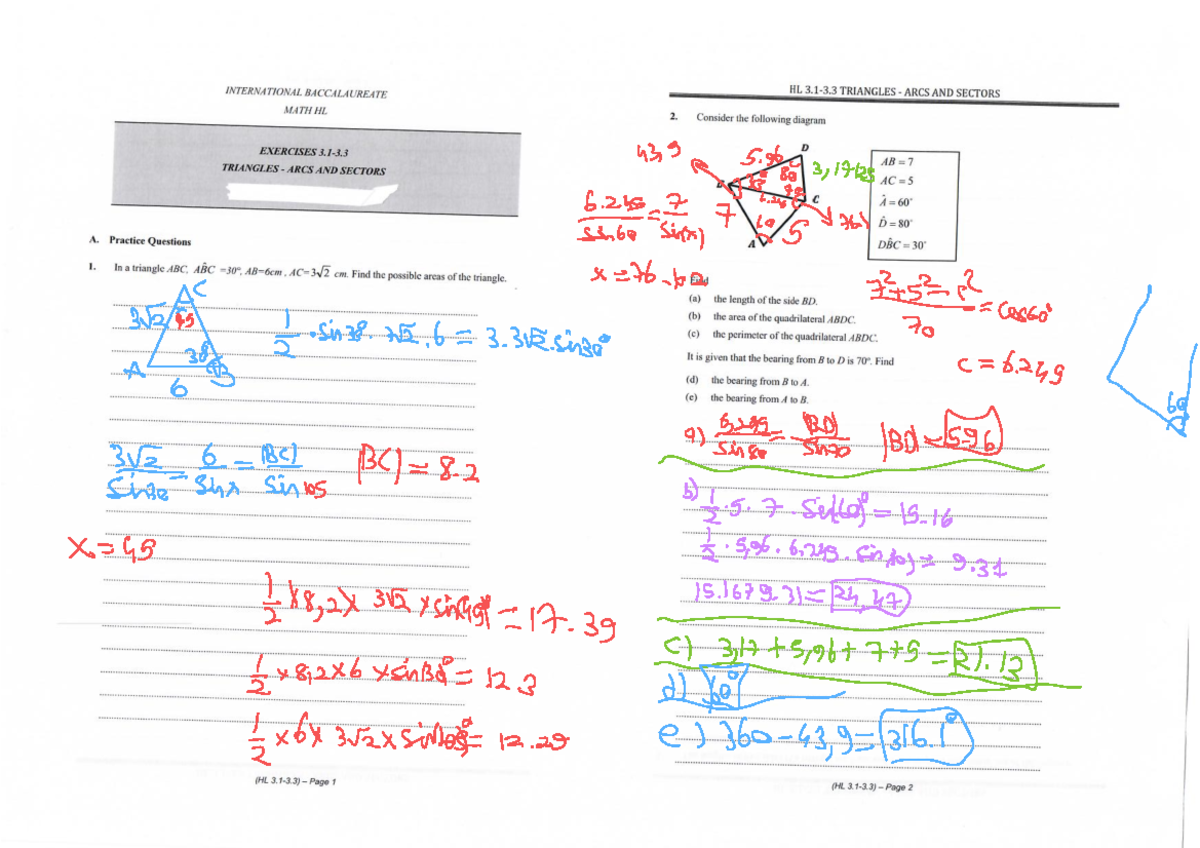 INTERNATIONAL BACCALAUREATE
MATH HL
EXERCISES 3.1-3.3
TRIANGLES - ARCS AND SECTORS
A. Practice Questions
1. In a triangle ABC, AB̂C =30°, AB=6cm , AC=3√2 cm. Find the possible areas of the triangle.
3√2
45
30
A
B
6
1/2 · sin30 · 3√2 . 6 = 3.3√2.sin30°
3√2/sin30 = 6/sin x = |BC|/sin 105
|BC| = 8.2
x = 45
1/2 × 8,2 × 3√2 × sin(45°) = 17.39
1/2 × 8,2 × 6 × sin(30°) = 12.3
1/2 × 6 × 3√2 × sin(105°) = 12.29
(HL 3.1-3.3) – Page 1
HL 3.1-3.3 TRIANGLES - ARCS AND SECTORS
2. Consider the following diagram
43,9
5.96
D
80
70
6.245
C
7
60
5
A
AB = 7
AC = 5
Â = 60°
D̂ = 80°
DB̂C = 30°
6.245/sin60 = 7/sin(x)
Find
7²+5²-c²/70 = cos60°
c = 6.249
(a) the length of the side BD.
(b) the area of the quadrilateral ABDC.
(c) the perimeter of the quadrilateral ABDC.
It is given that the bearing from B to D is 70°. Find
(d) the bearing from B to A.
(e) the bearing from A to B.
a) 6.245/sin80 = |BD|/sin70 |BD| = 5.96
b) 1/2 · 5 · 7 · sin(60)° = 15.16
1/2 · 5,96 · 6,245 · sin(30) = 9.31
15.16+9.31 = 24,47
c) 3,17 + 5,96 + 7+5 = 21.13
d)
e) 360 - 43,9 = 316.1°
(HL 3.1-3.3) – Page 2